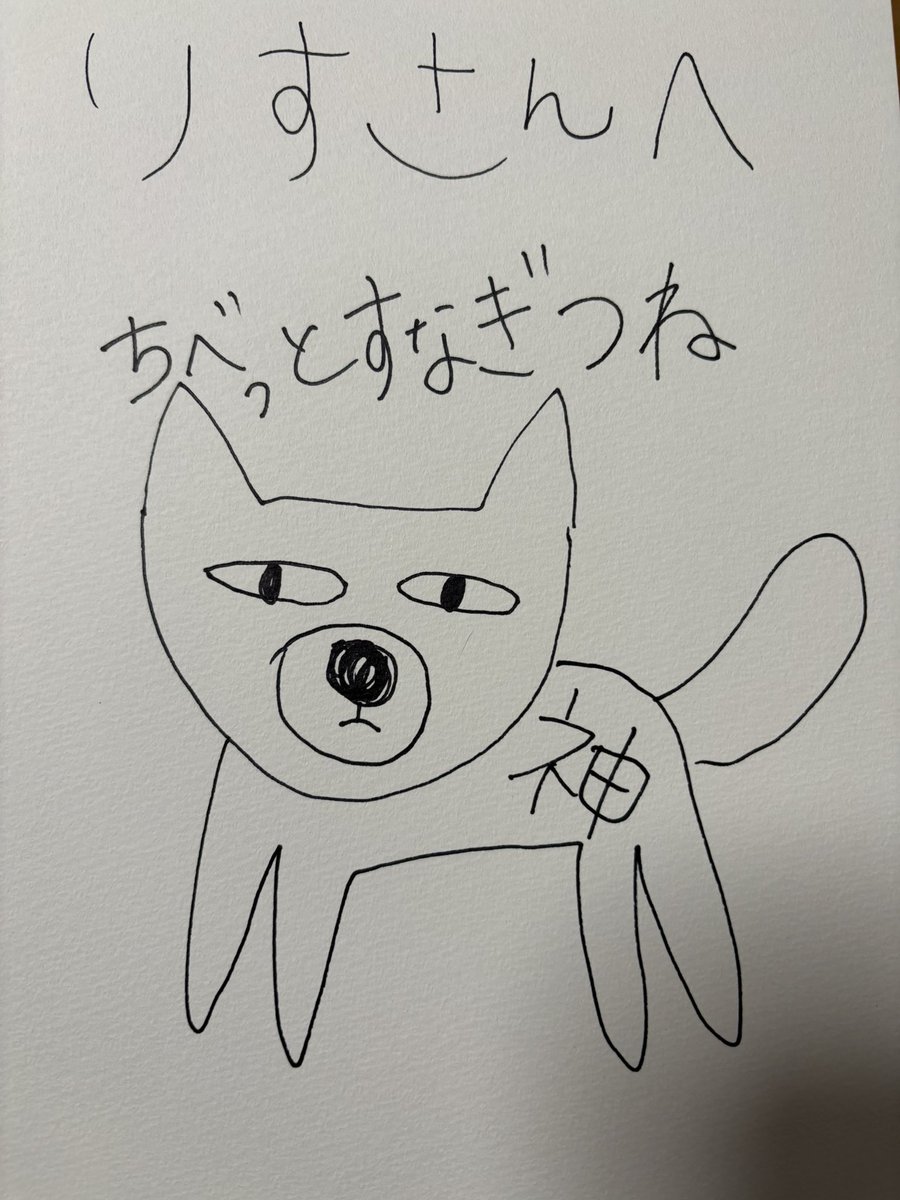 りすさんへ
ちべっとすなぎつね
神